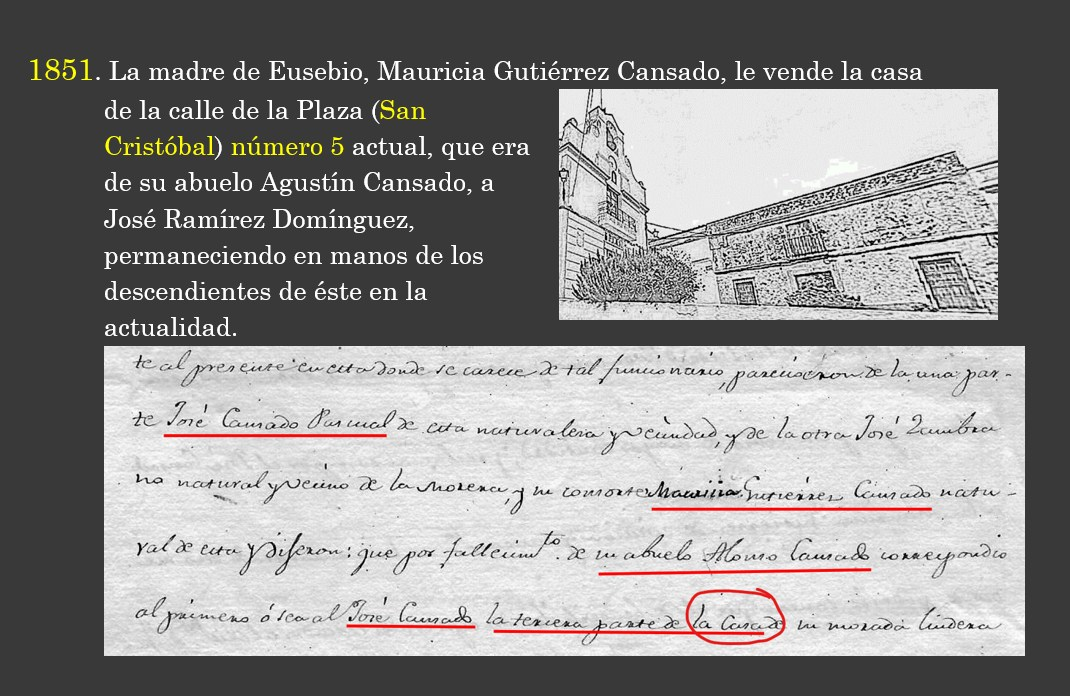 1851. La madre de Eusebio, Mauricia Gutiérrez Cansado, le vende la casa
de la calle de la Plaza (San
Cristóbal) número 5 actual, que era
de su abuelo Agustín Cansado, a
José Ramírez Domínguez,
permaneciendo en manos de los
descendientes de éste en la
actualidad.
te al presente en esta donde se carece de tal funcionario, parecieron de la una par-
te José Cansado Pascual de esta naturaleza y vecindad, y de la otra José Zambra
no natural y vecino de la Morera, y su consorte Mauricia Gutierrez Cansado natu-
ral de esta y Digeron: que por fallecimto. de su abuelo Alonso Cansado correspondio
al primero ó sea al José Cansado la tercera parte de la Casa de su morada lindera